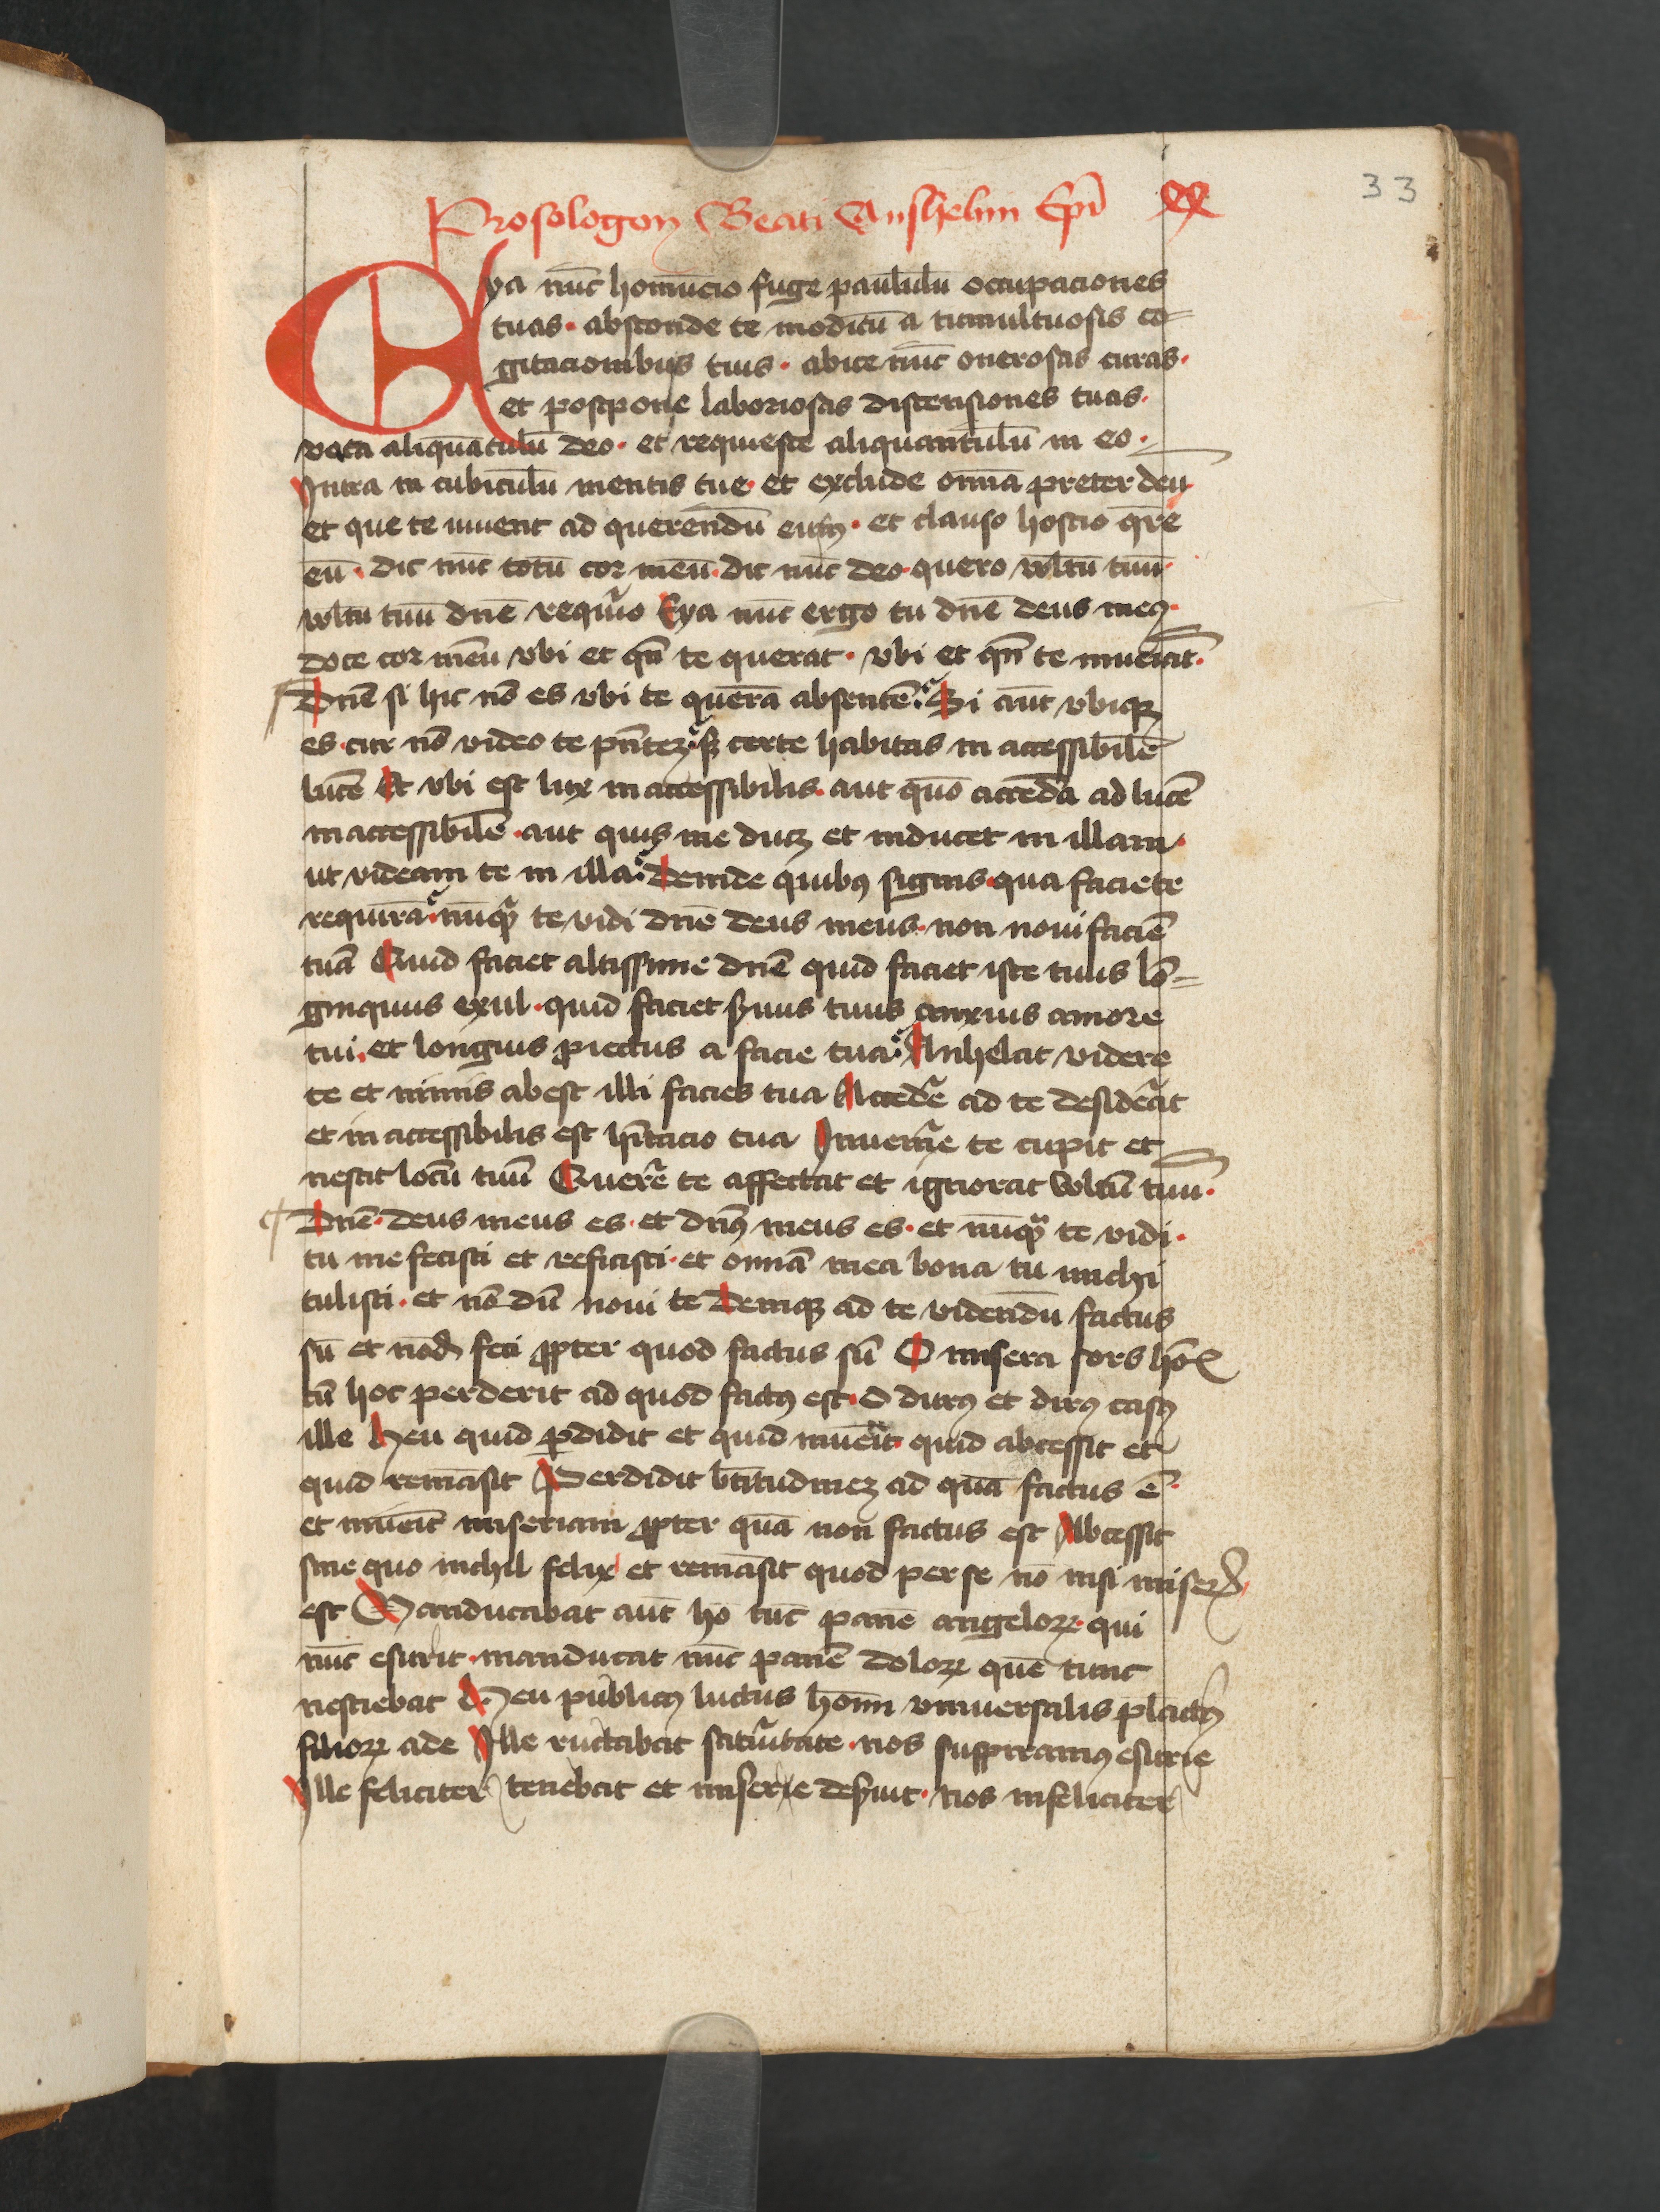 33
Prosologon Beati Anshelmi Ep̄i
Eya nūc homūcio fuge paululū occupaciones
tuas · absconde te modicū a tumultuosis co=
gitacionibus tuis · abice nūc onerosas curas ·
et postpone laboriosas distensiones tuas ·
vaca aliquātulū deo · et requiesce aliquantulū in eo ·
Intra in cubiculū mentis tue · et exclude om̄ia preter deū
et que te iuuent ad querendū eum · et clauso hostio q̄re
eū · dic nūc totū cor meū · dic nūc deo · quero vultū tuū ·
vultū tuū dn̄e requiro Eya nūc ergo tu dn̄e deus meꝯ ·
doce cor meū vbi et qn̄ te querat · vbi et qn̄ te inueniat ·
Dn̄e si hic nō es vbi te querā absentē · Si aūt vbiqꝫ
es · cur nō video te pn̄teꝫ · sꝫ certe habitas in accessibilē
lucē Et vbi est lux in accessibilis · aut quō accedā ad lucē
in accessibilē · aut quis me ducꝫ et inducet in illam ·
ut videam te in illa · Deinde quibꝯ signis · qua facie te
requirā · nūqͣ te vidi dn̄e deus meus · non noui faciē
tuā Quid faciet altissime dn̄e quid faciet iste tuus lō=
ginquus exul · quid faciet s̄uus tuus anxius amore
tui · et longius ꝓiectus a facie tua · Anhelat videre
te et nimis abest illi facies tua Accedͤe ad te desideͣt
et in accessibilis est hītacio tua Inuenire te cupit et
nescit locū tuū Querͤe te affectat et ignorat vultū tuū ·
Dn̄e · deus meus es · et dn̄s meus es · et nūqͣ te vidi ·
tu me fecisti et reficisti · et om̄ia mea bona tu michi
tulisti · et nō dū noui te Deniqꝫ ad te videndū factus
sū et nōd feci ꝓpter quod factus sū O misera sors hōīs
cū hoc perderit ad quod factꝯ est · O durꝯ et dirꝯ casꝯ
ille Heu quid ꝑdidit et quid inuenit · quid abcessit et
quid remāsit Perdidit bt̄itudineꝫ ad quā factus ē ·
et inuenit miseriam ꝓpter quā non factus est Abcessit
sine quo nichil felix et remāsit quod per se nō nisi miserꝫ
est Manducabat aūt hō tūc panē angeloꝝ · qui
nūc esurit · manducat nūc panē doloꝝ quē tunc
nesciebat Heu publicꝯ luctus hoīm vniuersalis planctꝯ
filioꝝ ade Ille ructabat saturitate · nos suspiramꝯ esurie
Ille feliciter tenebat et misere deseruit · nos infeliciter